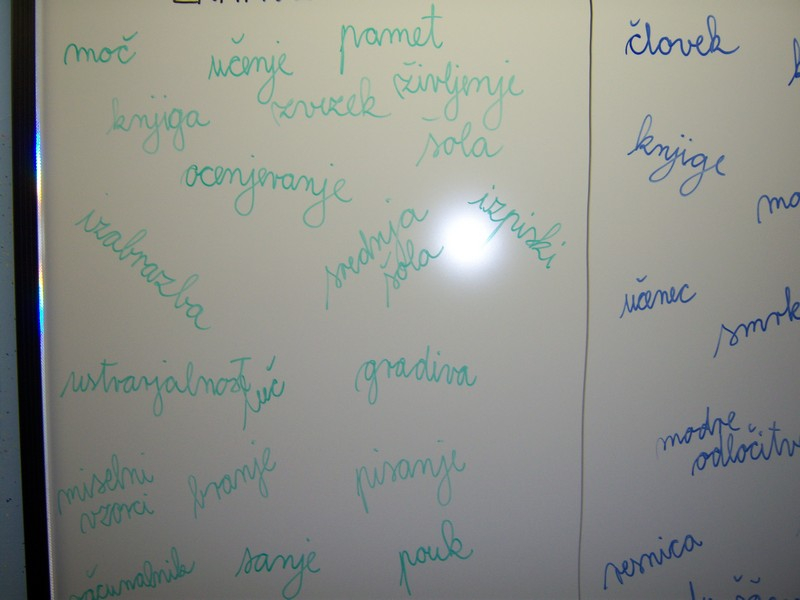 moč
učenje
pamet
življenje
knjiga
zvezek
šola
ocenjevanje
izabrazba
srednja
šola
izpiski
ustvarjalnost
luč
gradiva
miselni
vzorci
branje
pisanje
računalnik
sanje
pouk
človek
knjige
učenec
modre
odločitv
resnica